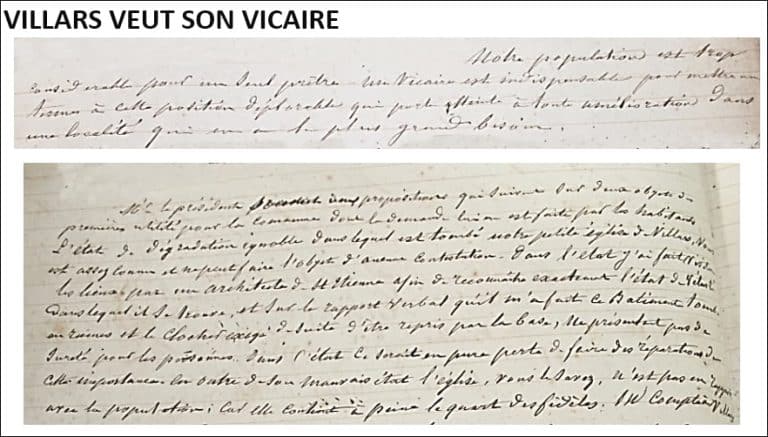 VILLARS VEUT SON VICAIRE
Notre population est trop
considerable pour un seul prêtre un Vicaire est indispensable pour mettre un
terme à cette position déplorable qui porte atteinte à tout amélioration dans
une localité qui en a le plus grand besoin.
Mr le président propositions qui suivent sur deux objets de
premières utilité pour la commune dont la demande lui en est faite par les habitans
L'état de dégradation ignoble dans lequel est tombé notre petite église de Villars, Vous
est assez connu et ne peut faire l'objet d'aucune contestation. Dans l'état j'ai fait
les lieux par un architecte de St Etienne afin de reconnaître exactement l'état de
dans lequel il se trouve, et sur le rapport verbal qu'il m'a fait ce Batiment tombe
en ruines et le Clocher exigé de suite d'être repris par la base, Ne présentant pas de
sureté pour les Dans l'état ce serait en pure perte de faire des réparations de
cette importance. En outre de son mauvais état l'église, vous le savez, n'est pas en
avec la population; Car elle contient à peine le quart des fidèles.